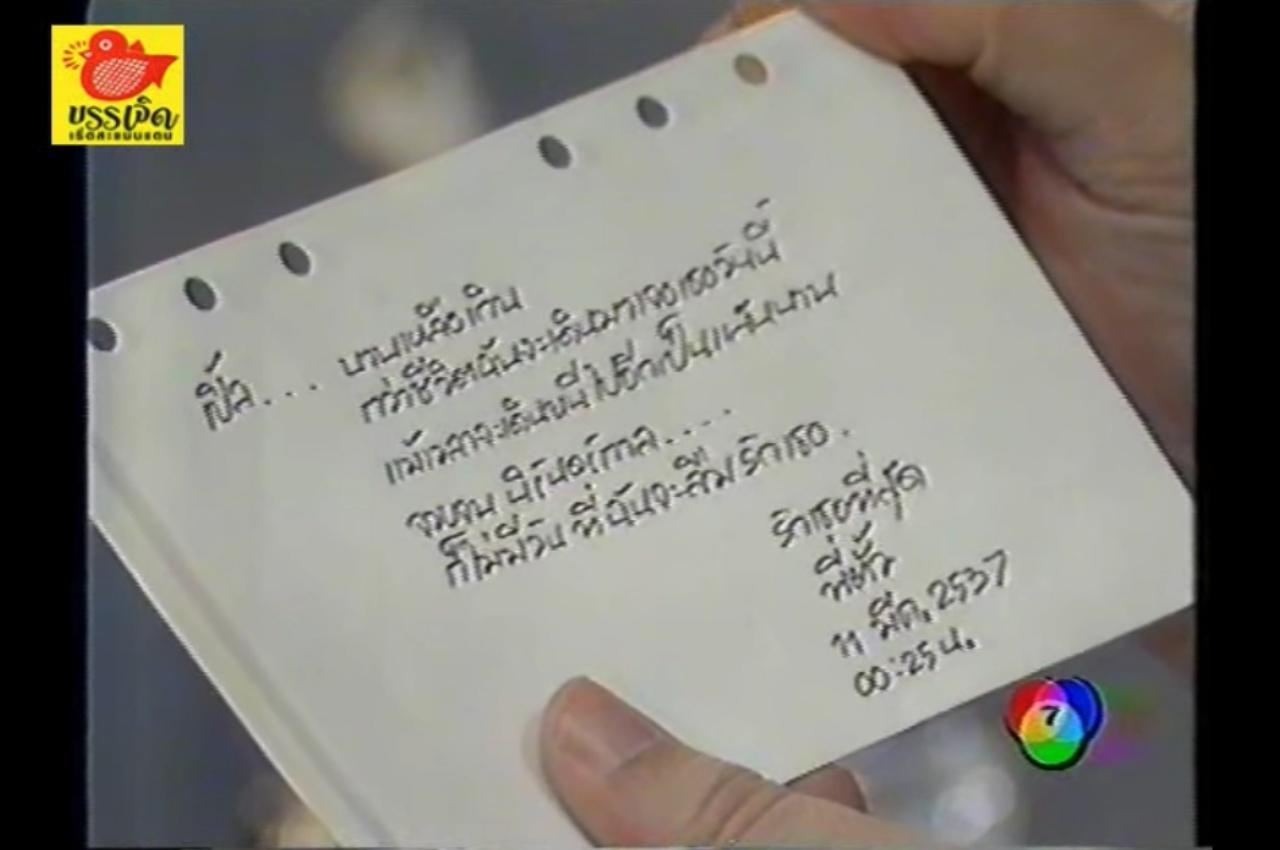 บรรเจิด
เธิดสะแมนแตน
เปิ้ล.... นานเหลือเกิน
กว่าชีวิตฉันจะเดินมาเจอเธอวันนี้
แม้เวลาจะเดินหนีไปอีกเป็นแสนนาน
จวบจน นิรันดร์กาล....
ก็ไม่มีวัน ที่ฉันจะลืม รักเธอ.
รักเธอที่สุด
พี่ตั้ว
11 มีค. 2537
00:25 น.
7